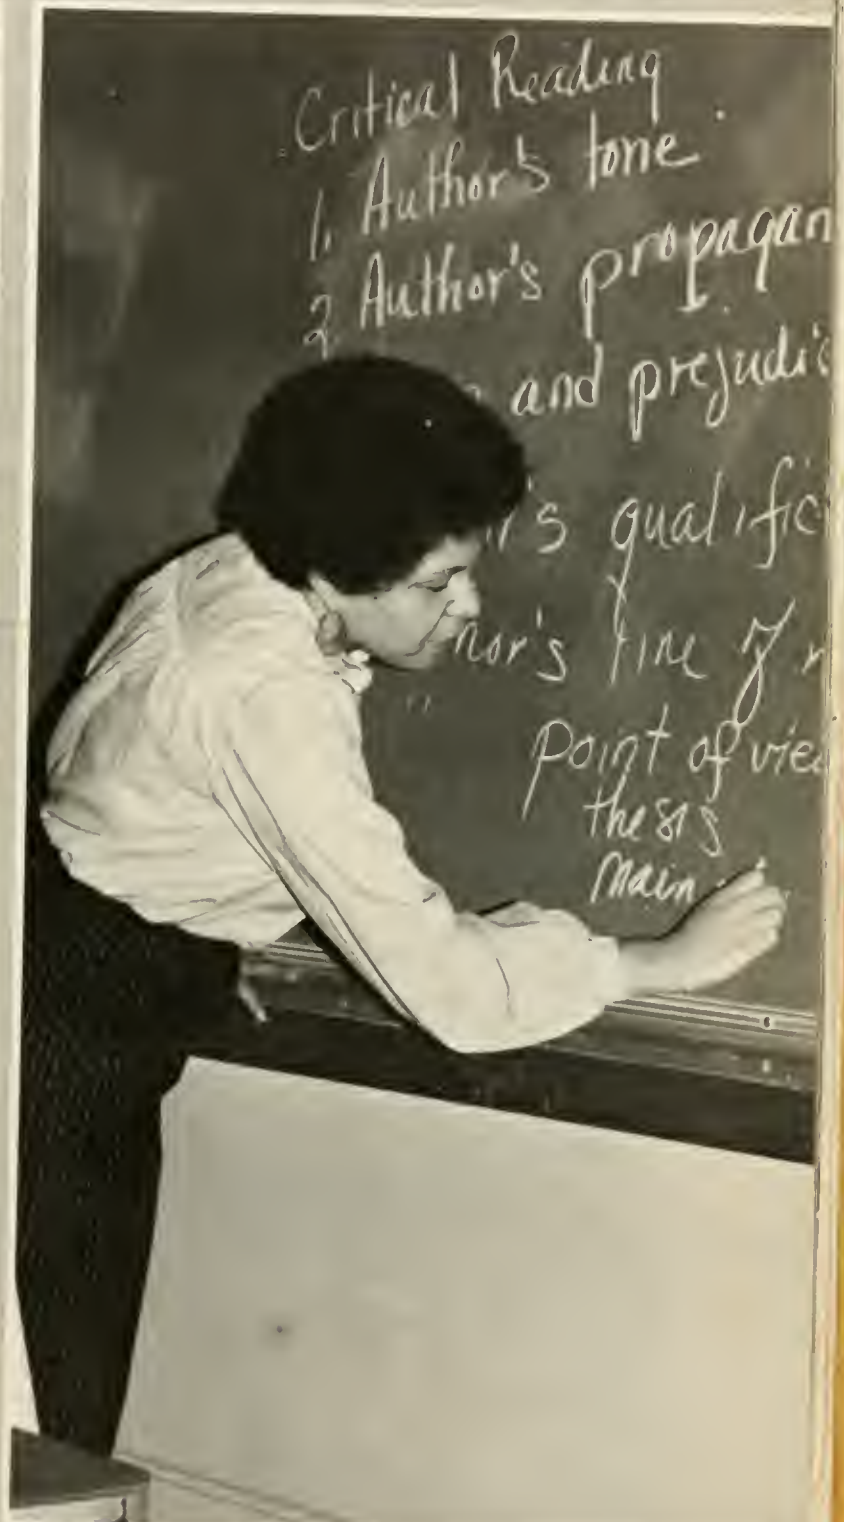 Critical Reading
1. Author's tone
2. Author's propagan
and prejudic
r's qualific
hor's line of r
"
point of view
thesis
main